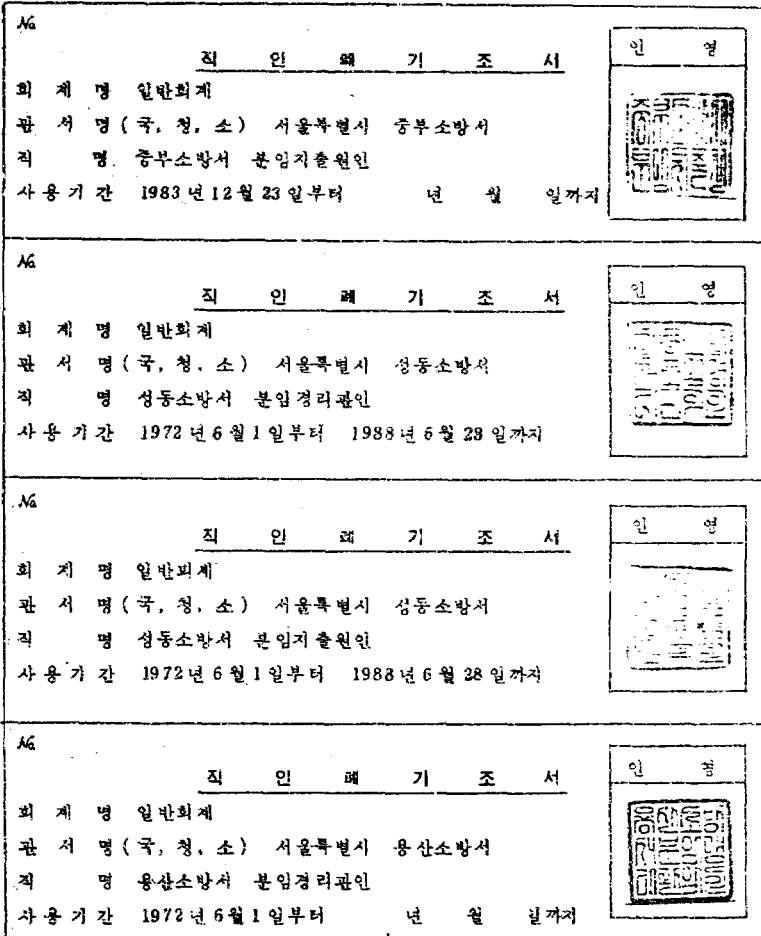 №
직 인 폐 기 조 서
인 영
회 계 명 일반회계
관 서 명 ( 국, 청, 소 ) 서울특별시 중부소방서
직 명 중부소방서 분임지출원인
사 용 기 간 1983 년 12 월 23 일부터 년 월 일까지
№
직 인 폐 기 조 서
인 영
회 계 명 일반회계
관 서 명 ( 국, 청, 소 ) 서울특별시 성동소방서
직 명 성동소방서 분임경리관인
사 용 기 간 1972 년 6 월 1 일부터 1988 년 6 월 28 일까지
№
직 인 폐 기 조 서
인 영
회 계 명 일반회계
관 서 명 ( 국, 청, 소 ) 서울특별시 성동소방서
직 명 성동소방서 분임지출원인
사 용 기 간 1972 년 6 월 1 일부터 1988 년 6 월 28 일까지
№
직 인 폐 기 조 서
인 영
회 계 명 일반회계
관 서 명 ( 국, 청, 소 ) 서울특별시 용산소방서
직 명 용산소방서 분임경리관인
사 용 기 간 1972 년 6 월 1 일부터 년 월 일까지